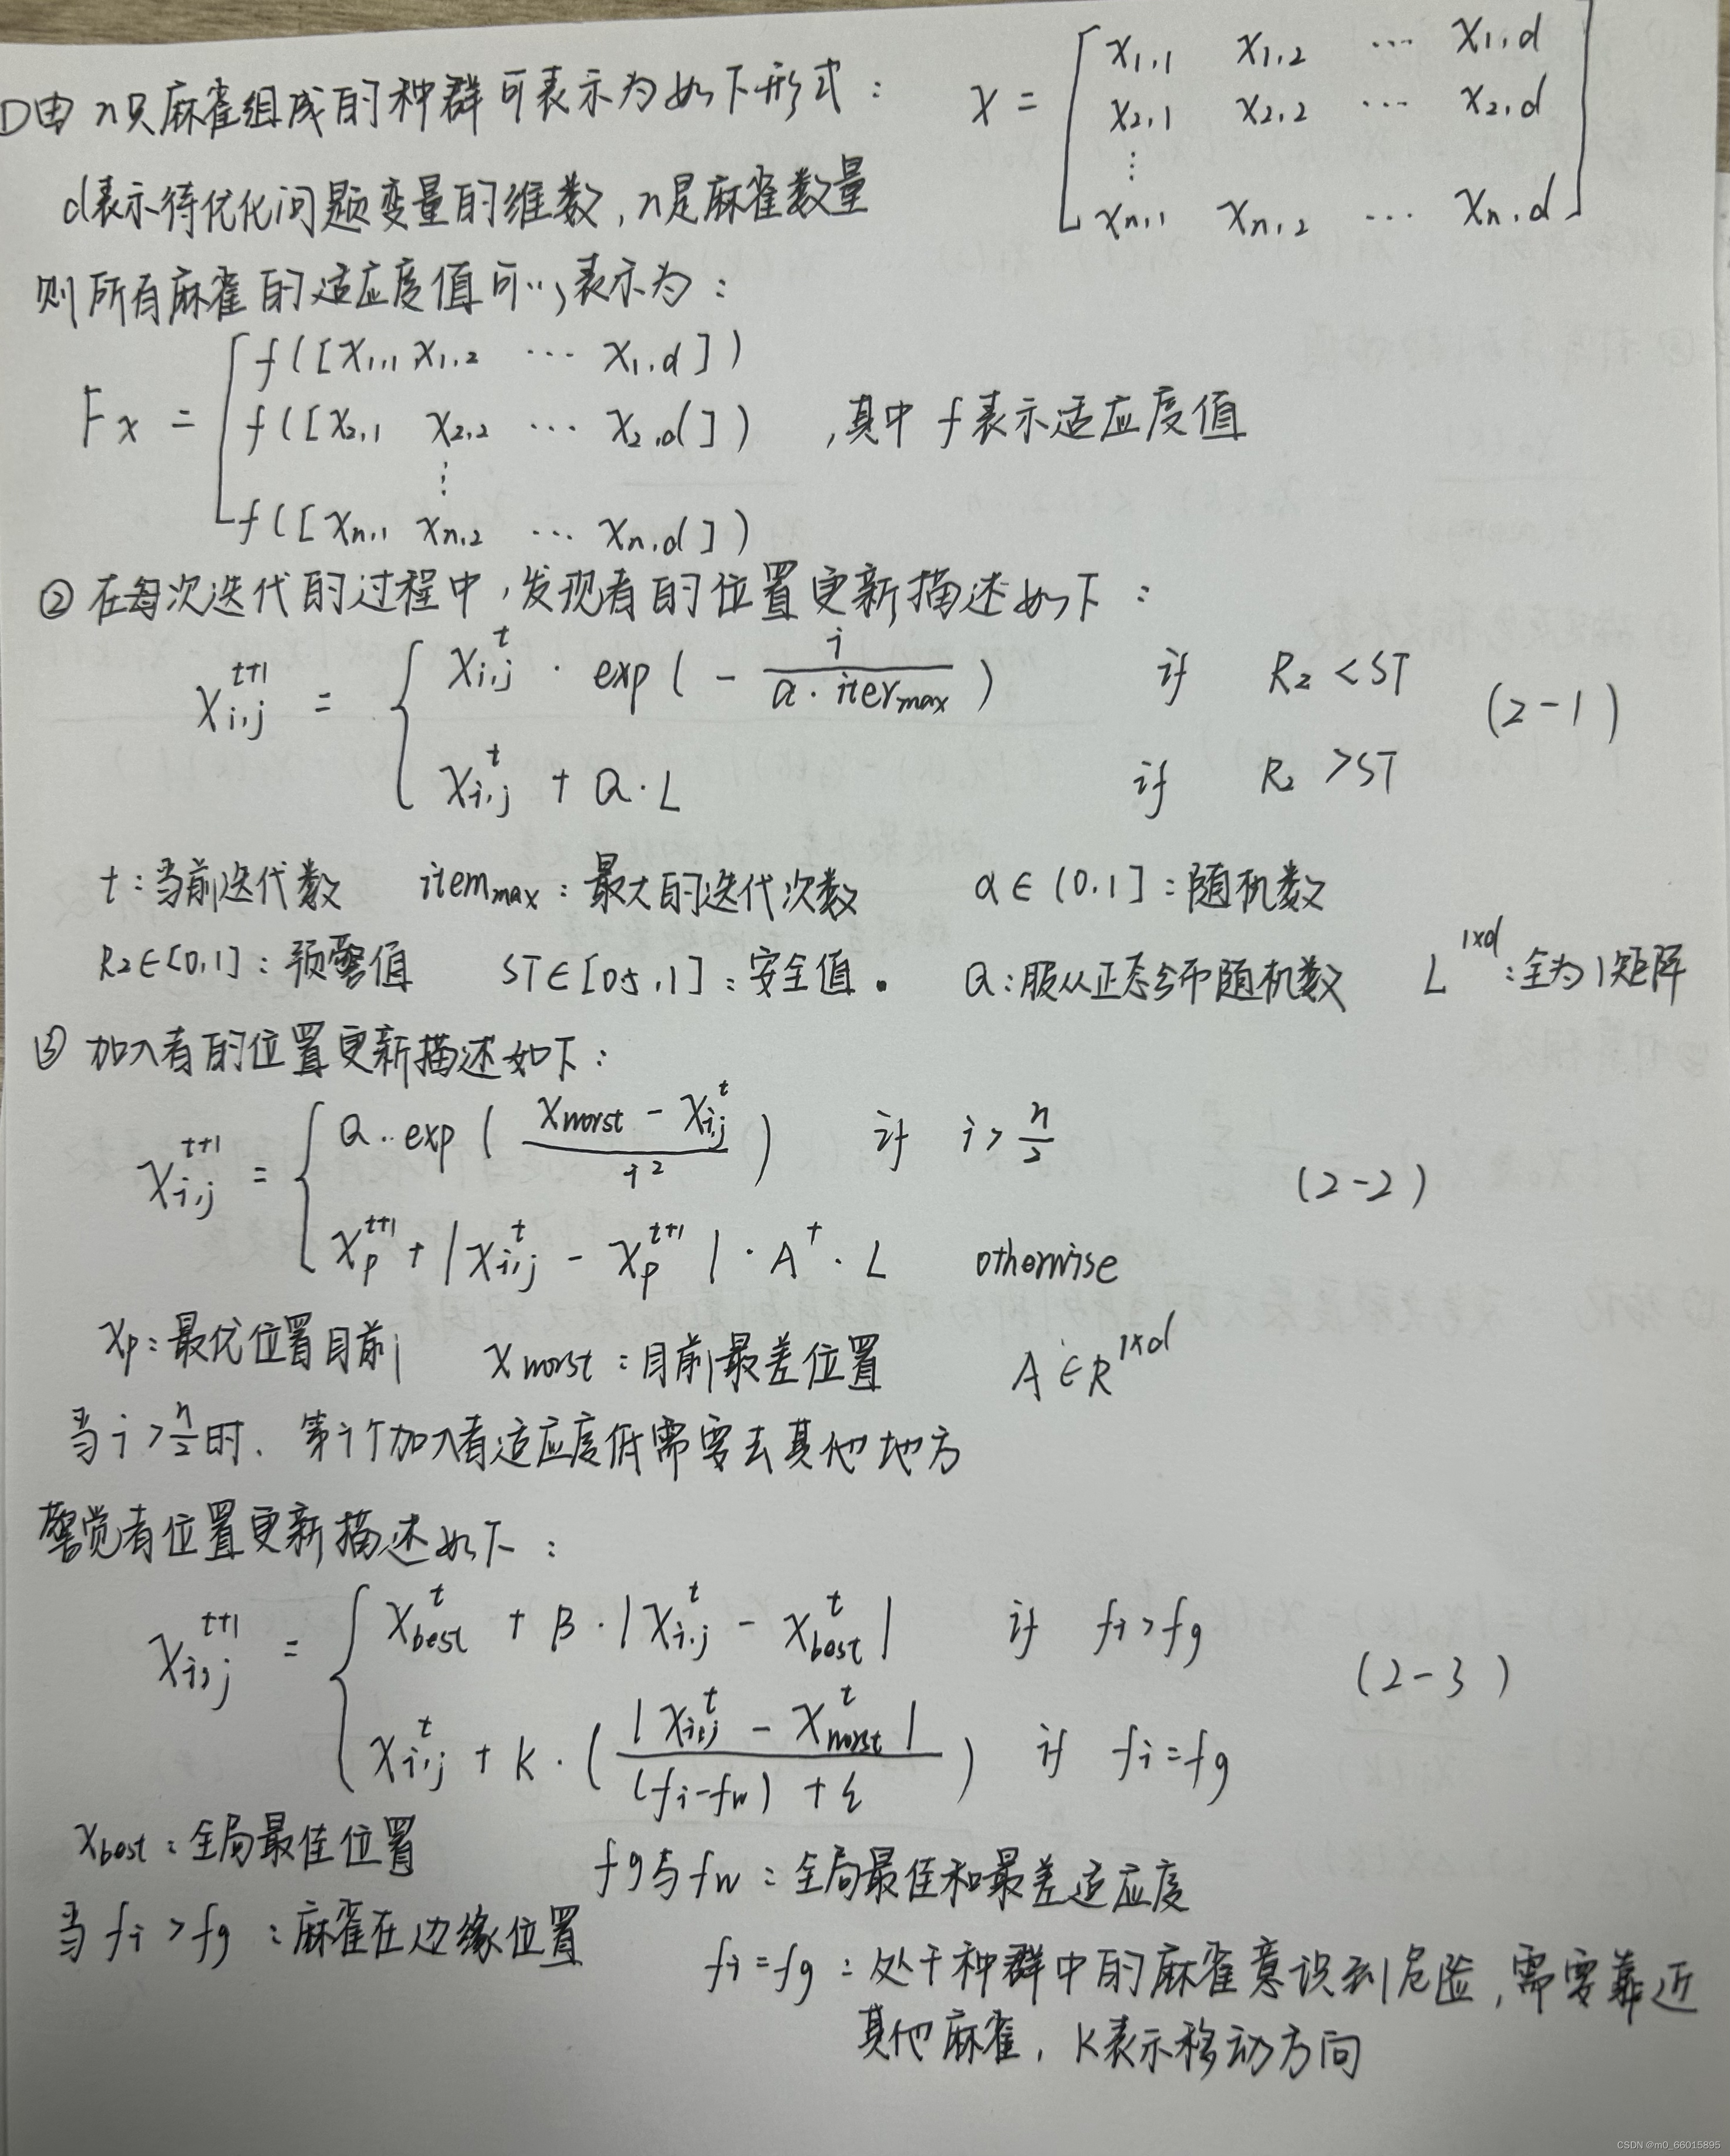 ①由n只麻雀组成的种群可表示为如下形式： X = [ x1,1 x1,2 … x1,d
x2,1 x2,2 … x2,d
⋮
xn,1 xn,2 … xn,d ]
d表示待优化问题变量的维数,n是麻雀数量
则所有麻雀的适应度值可以表示为：
Fx = [ f([x1,1 x1,2 … x1,d])
f([x2,1 x2,2 … x2,d]) ,其中 f表示适应度值
⋮
f([xn,1 xn,2 … xn,d]) ]
② 在每次迭代的过程中,发现者的位置更新描述如下：
X_{i,j}^{t+1} = { X_{i,j}^{t} · exp(- i / (α·iter_max)) if R2 < ST (2-1)
X_{i,j}^{t} + Q·L if R2 > ST
t:当前迭代数 item_max:最大的迭代次数 α∈(0,1]:随机数
R2∈[0,1]:预警值 ST∈[0.5,1]:安全值。 Q:服从正态分布随机数 L^{1×d}:全为1矩阵
③ 加入者的位置更新描述如下：
X_{i,j}^{t+1} = { Q·exp((X_worst - X_{i,j}^{t}) / i^2) if i > n/2 (2-2)
X_p^{t+1} + |X_{i,j}^{t} - X_p^{t+1}| · A^+ · L otherwise
Xp:最优位置目前 X_worst:目前最差位置 A∈R^{1×d}
当i>n/2时. 第i个加入者适应度低需要去其他地方
警觉者位置更新描述如下：
X_{i,j}^{t+1} = { X_best^{t} + β·|X_{i,j}^{t} - X_best^{t}| if fi > fg (2-3)
X_{i,j}^{t} + K·(|X_{i,j}^{t} - X_worst^{t}| / ((fi-fw)+ε)) if fi = fg
X_best:全局最佳位置 fg与fw:全局最佳和最差适应度
当fi>fg:麻雀在边缘位置
fi=fg:处于种群中的麻雀意识到危险,需要靠近
其他麻雀. K表示移动方向
CSDN @m0_66015895